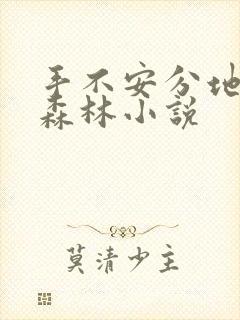 手不安分地
森林小説
莫清少主